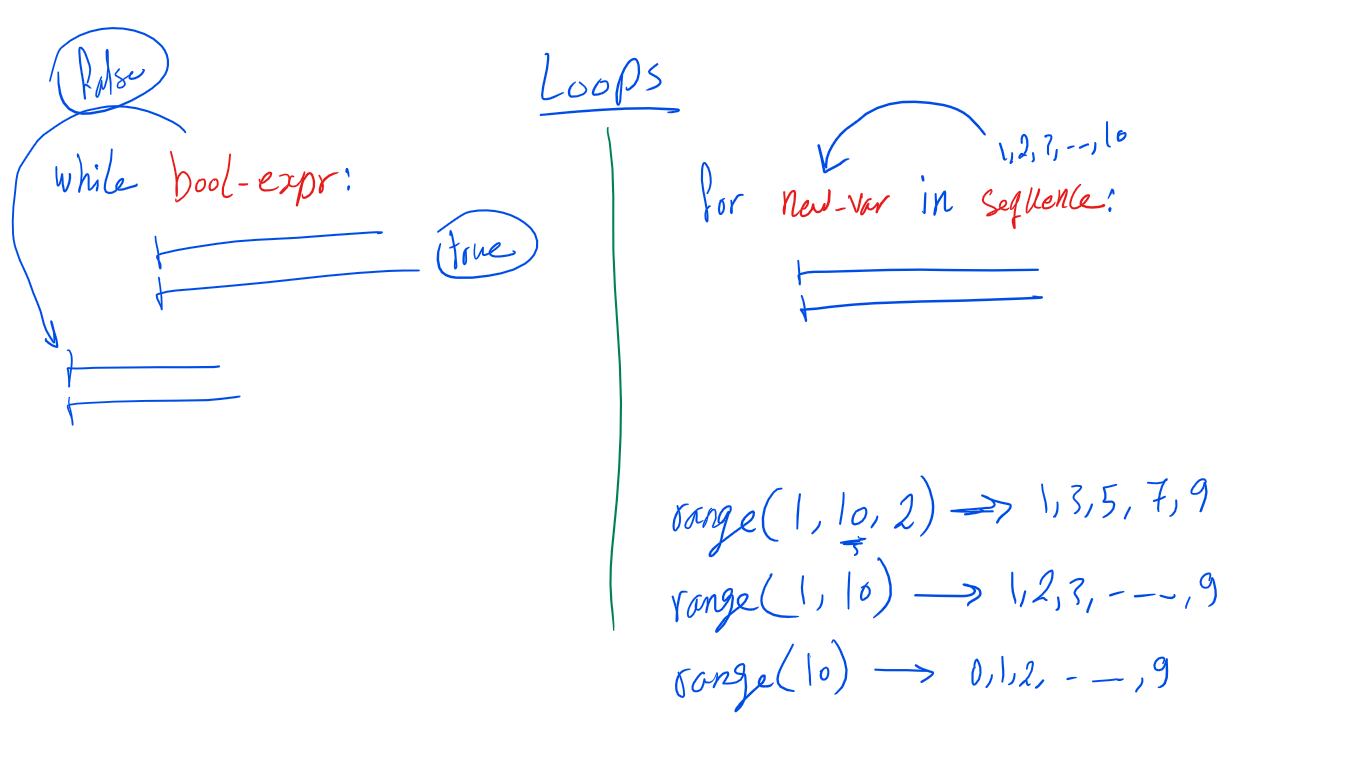 Loops
false
while bool-expr:
true
1,2,3,--,10
for new-var in sequence:
range(1, 10, 2) → 1,3,5,7,9
range(1, 10) → 1,2,3,----,9
range(10) → 0,1,2,--,9